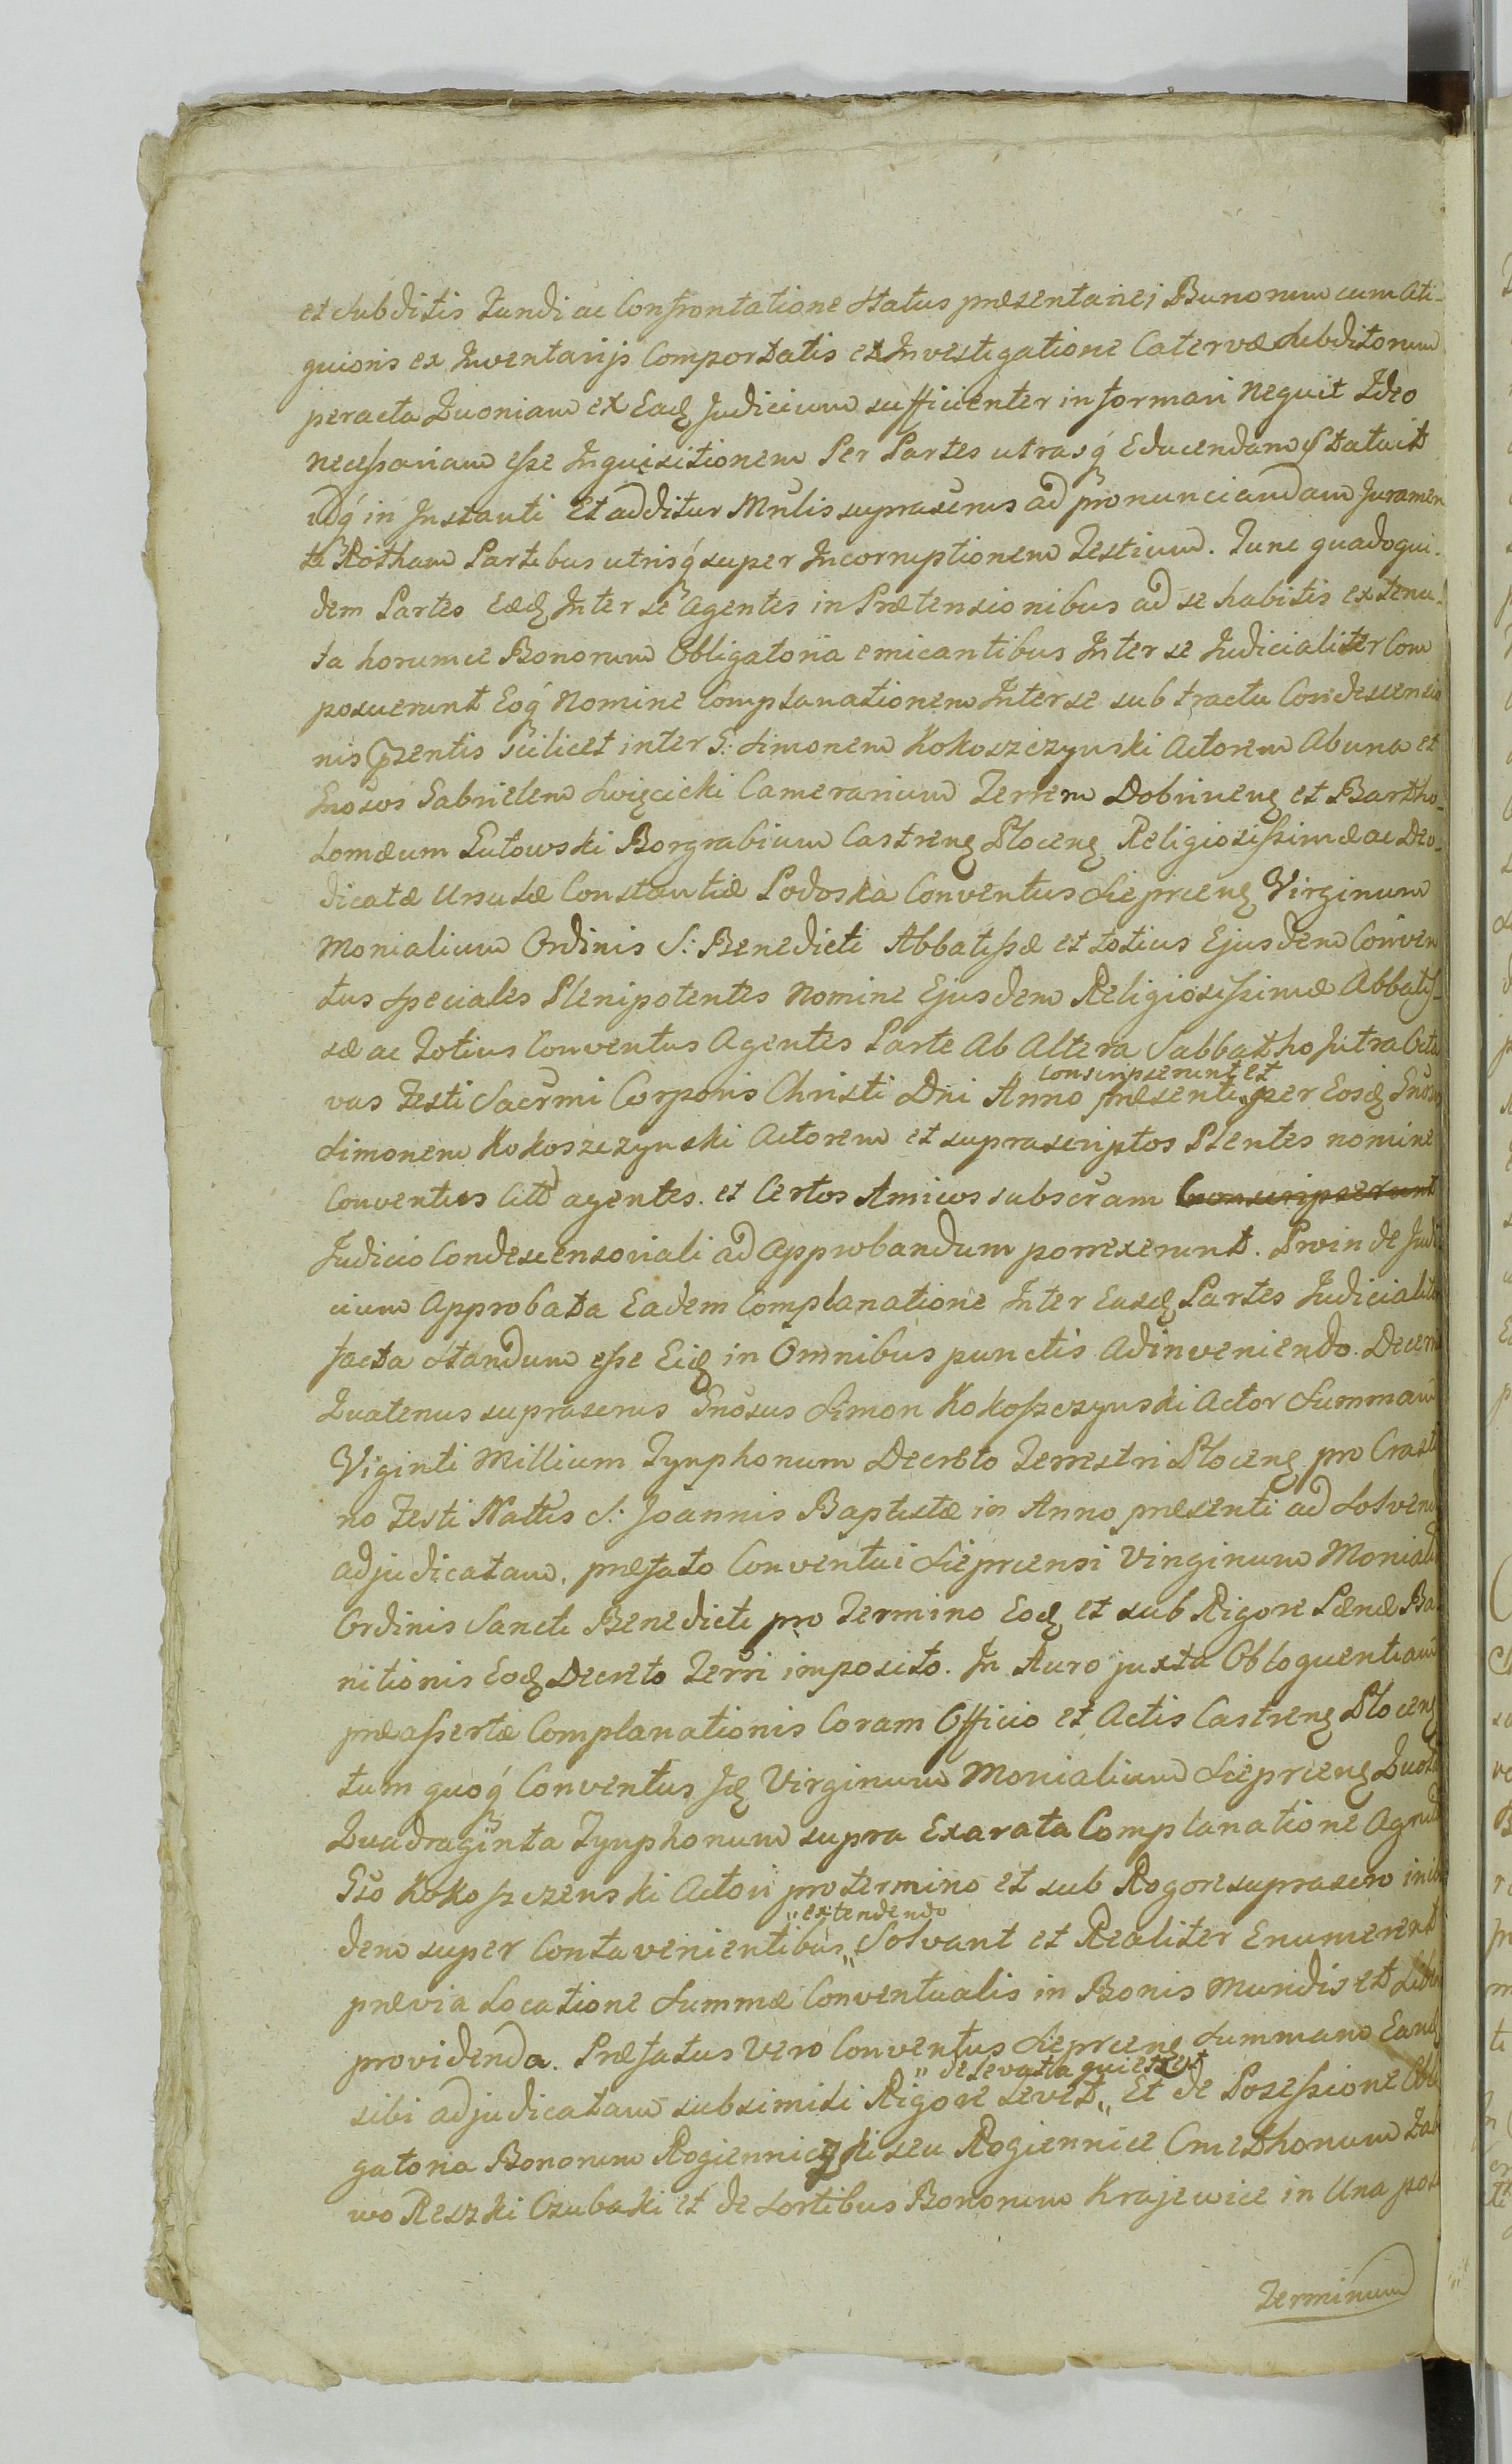 et Subditis Fundi ac Confrontatione Status præsentanei Bunorum cum Ati-
guioris ex Inventarijs Comportatis et Investigatione Catervæ Subditorum
peracta Quoniam ex Eadꝫ Judicium sufficienter informari Nequit Ideo
necessariam esse Inquisitionem Per Partes utrasq́ Educendam Statuit
idq́ in Instanti Et additur Mnlis suprascrius ad pronunciandam Juramen
ti Rotham Partibus utrisq́ super Incorruptionem Testium. Tunc quadoqui-
dem Partes Eædꝫ Inter se Agentes in Prætensionibus ad se habitis ex Tenu-
ta horumce Bonorum Obligatoria emicantibus Inter se Judicialiter Com
posuerunt Eoq́ Nomine Complanationem Inter se sub tractu Condescensio
nis Pzentis scilicet inter G: Simonem Kokoszczynski Actorem Ab una et
Gnosos Gabrielem Swięcicki Camerarium Terrem Dobrinenꝫ et Bartho-
lomæum Lutowski Borgrabium Castrenꝫ Plocenꝫ Religiosissimæ ac Deo-
dicatæ Ursulæ Constantiæ Podoska Conventus Sieprcenꝫ Virginum
Monialium Ordinis S: Benedicti Abbatissæ et totius Ejusdem Conven
tus Speciales Plenipotentes Nomine Ejusdem Religiosissimæ Abbatis-
sæ ac Totius Conventus Agentes Parte Ab Altera Sabbatho Intra Octa
vas Festi Sacrmi Corporis Christi Dni Anno præsenti „conscripserunt et per Eosdꝫ Gnosos
Simonem Kokoszczynski Actorem et suprascriptos Plentes nomine
Conventus Citto agentes. et Certos Amicos subscram Conscripserunt
Judicio Condescensoriali ad Approbandum porrexerunt. Proinde Judi
cium Approbata Eadem Complanatione Inter Easdꝫ Partes Judicialite
facta Standum esse Eidꝫ in Omnibus punctis Adinveniendo. Decerni
Quatenus suprascrius Gnosus Simon Kokoszczynski Actor Summam
Viginti Millium Tynphonum Decreto Terrestri Plocenꝫ pro Crasti
no Festi Nattis S: Joannis Baptistæ in Anno præsenti ad Solvend
adjudicatam, præfato Conventui Sieprcensi Virginum Moniali
Ordinis Sancti Benedicti pro Termino Eodꝫ et sub Rigore Pænæ Ba
nitionis Eodꝫ Decreto Terri imposito. In Auro juxta Obloquentiam
præassertæ Complanationis Coram Officio et Actis Castrenꝫ Plocenꝫ
tum quoq́ Conventus Idꝫ Virginum Monialium Sieprcenꝫ
Quadraginta Tynphonum supra Exarata Complanatione
Gso Kokoszczenski Actori pro termino et sub Rogore suprascro
dem super Contavenientibus „extendendo„ Solvant et Realiter Enumerent
prævia Locatione Summæ Conventualis in Bonis Mundis et
providenda. Præfatus Vero Conventus Sieprcenꝫ Summam Eandꝫ
sibi adjudicatam subsimili Rigore Levet „de levata quietet„ Et de Possessione Obli
gatoria Bonorum Rogienniczki seu Rogiennice Cmethonum
wo Reszki Czubaki et de Sortibus Bonorum Krajewice in Una post
Terminum